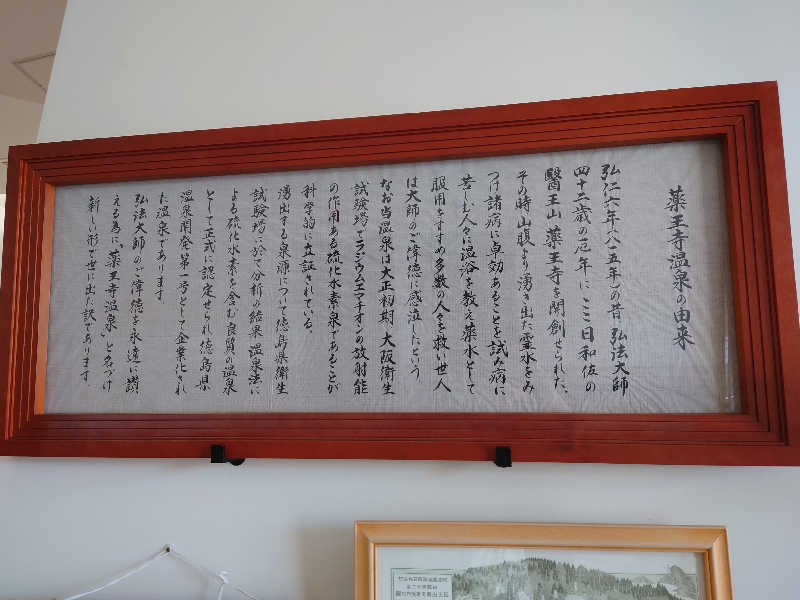 薬王寺温泉の由来
弘仁六年(八一五年)の昔弘法大師
四十二歳の厄年にここ日和佐の
醫王山薬王寺を開創せられた、
その時山腹より湧き出た霊水をみ
つけ諸病に卓効あることを試み病に
苦しむ人々に温浴を教え薬水として
服用をすすめ多数の人々を救い世人
は大師のご偉徳に感泣したという
なお当温泉は大正初期、大阪衛生
試験場でラジウムエマナチオンの放射能
の作用ある硫化水素泉であることが
科学的に立証されている。
湧出する泉源について徳島県衛生
試験場に於て分析の結果温泉法に
よる硫化水素を含む良質の温泉
として正式に認定せられ徳島県
温泉開発第一号として企業化され
た温泉であります
弘法大師のご偉徳を永遠に讃
える為に、薬王寺温泉、と名づけ
新しい形で世に出た訳であります。